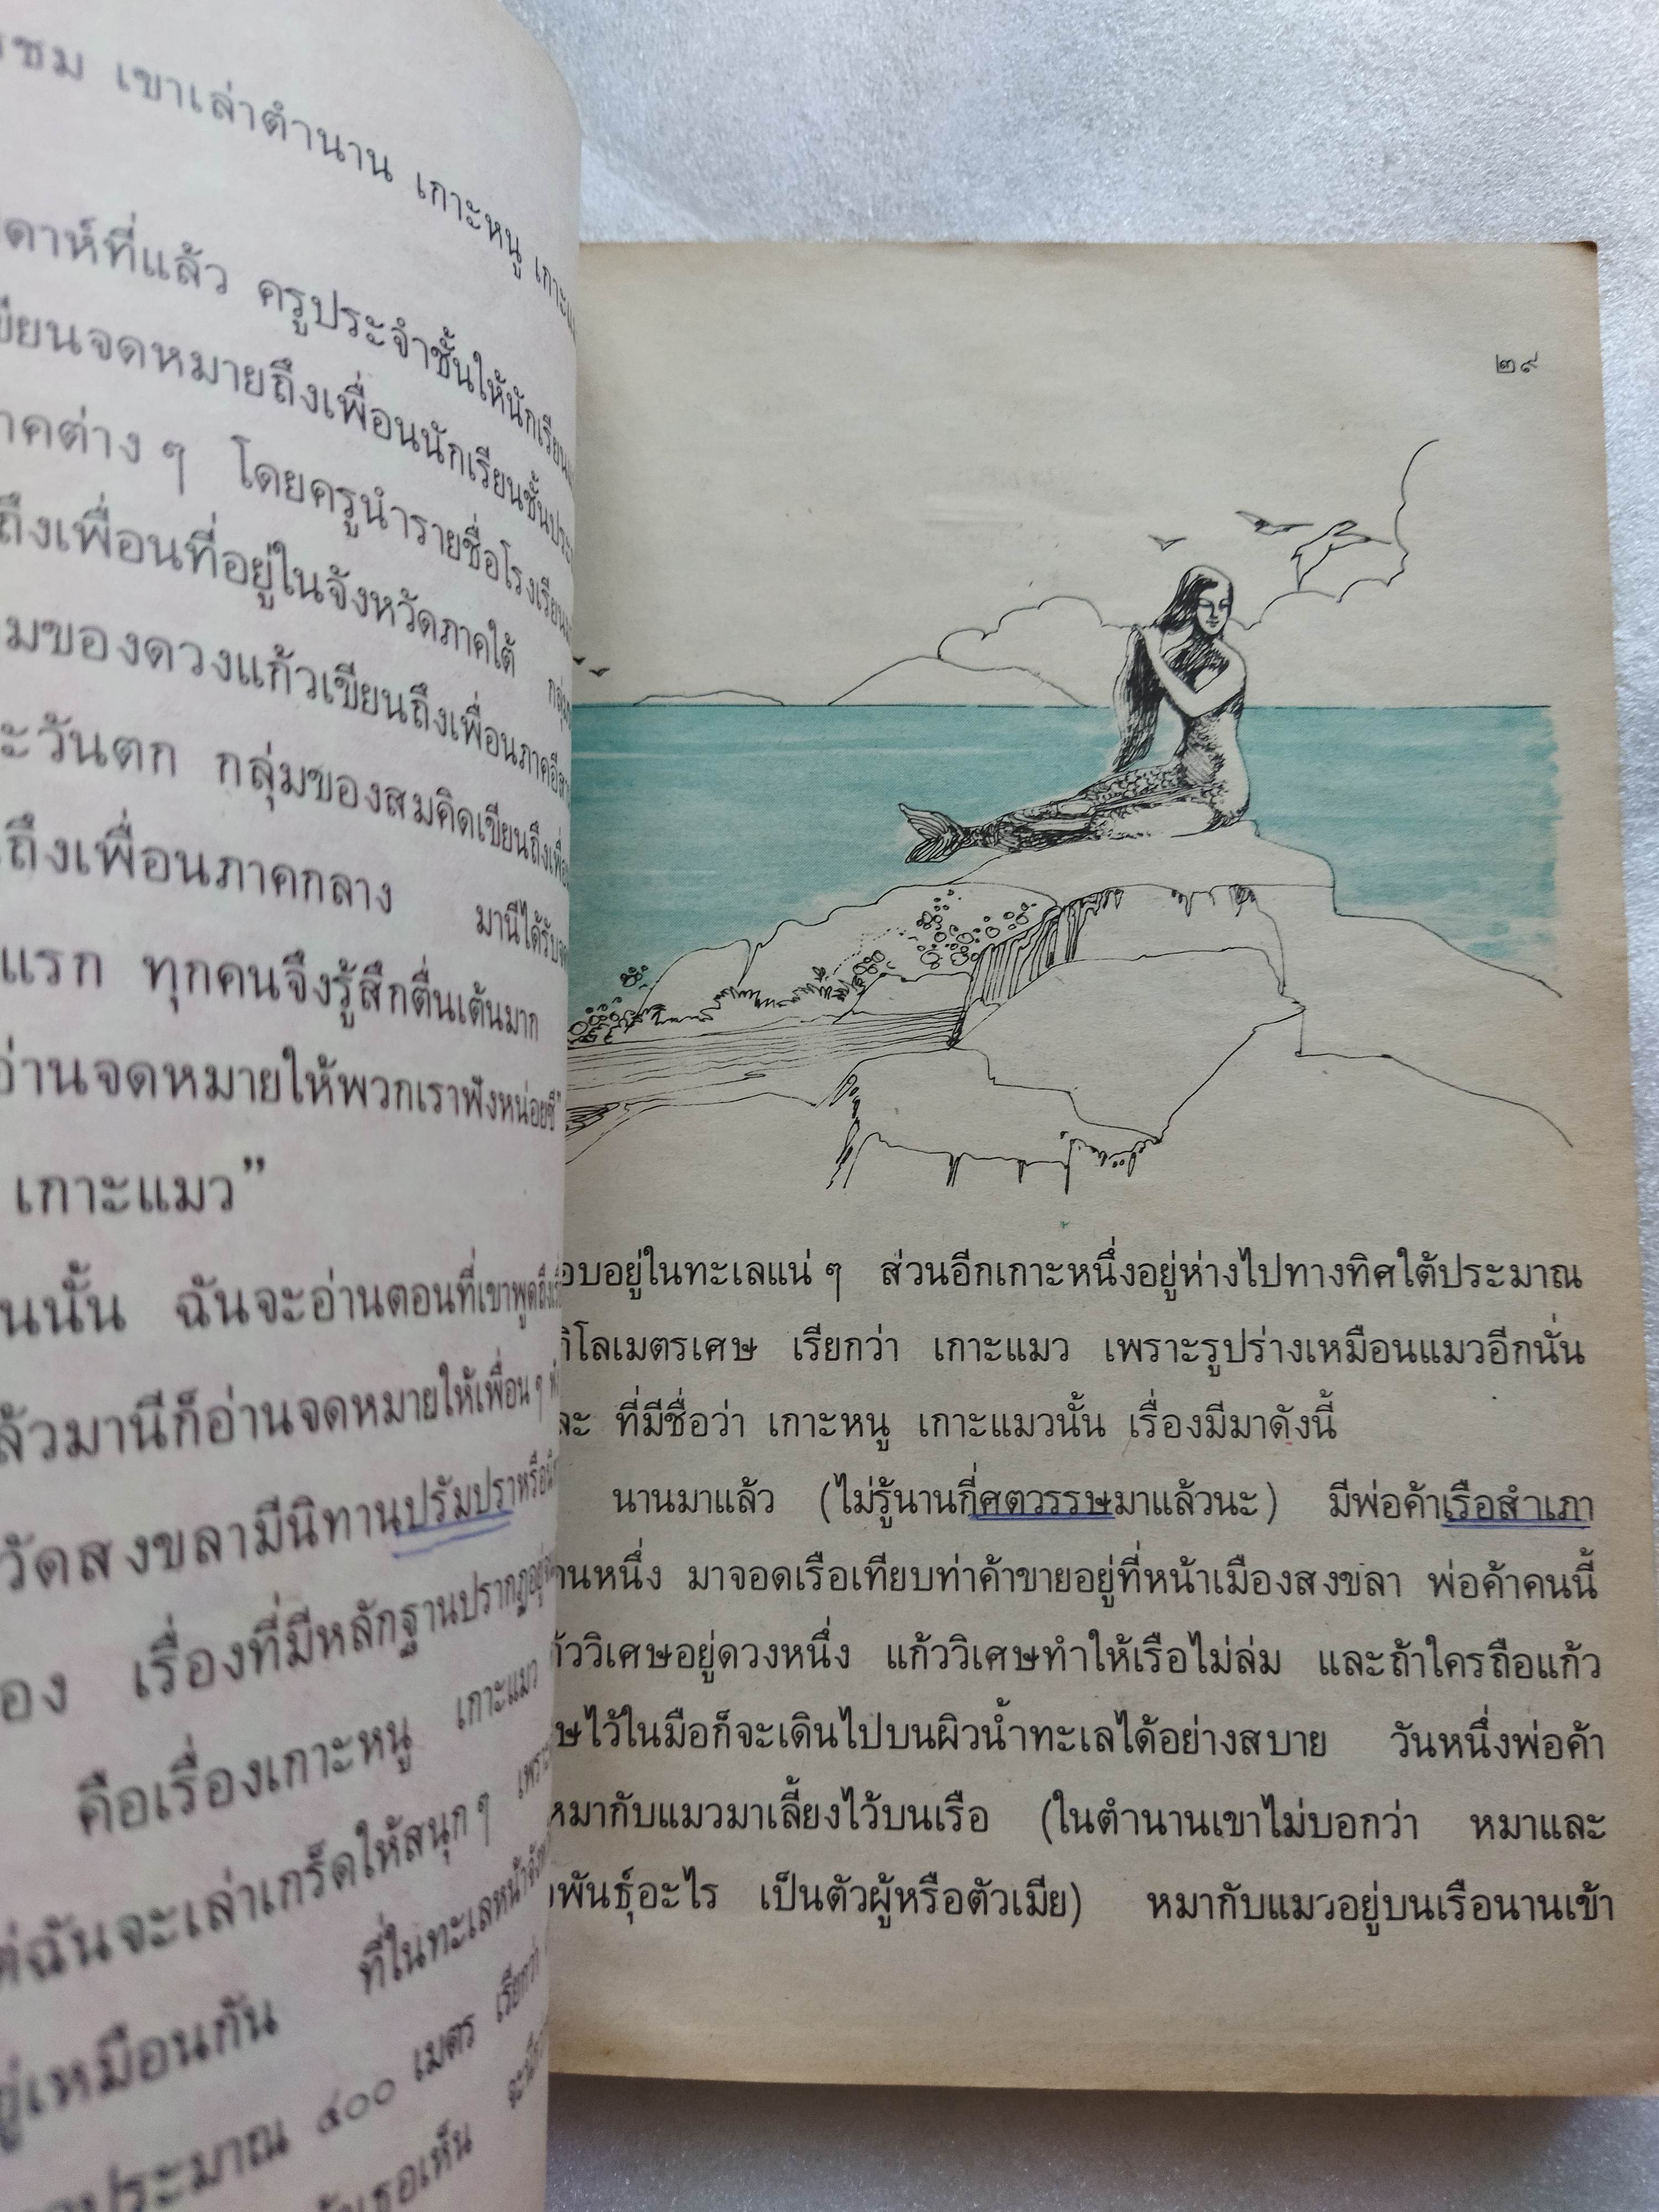 ชม เขาเล่าตำนาน เกาะหนู
ดาห์ที่แล้ว ครูประจำชั้นให้นักเรียน
ขียนจดหมายถึงเพื่อนนักเรียนชั้น
าคต่าง ๆ โดยครูนำรายชื่อโรงเรียน
ถึงเพื่อนที่อยู่ในจังหวัดภาคใต้
มของดวงแก้วเขียนถึงเพื่อนภาคอีสาน
ะวันตก กลุ่มของสมคิดเขียนถึง
ถึงเพื่อนภาคกลาง มานีได้รับ
แรก ทุกคนจึงรู้สึกตื่นเต้นมาก
อ่านจดหมายให้พวกเราฟังหน่อยซี"
เกาะแมว”
นนั้น ฉันจะอ่านตอนที่เขาพูดถึง
ล้วมานีก็อ่านจดหมายให้เพื่อน ๆ
วัดสงขลามีนิทานปรัมปราหรือ
อง เรื่องที่มีหลักฐานปรากฏอยู่
คือเรื่องเกาะหนู เกาะแมว
ต่ฉันจะเล่าเกร็ดให้สนุก ๆ
ยู่เหมือนกัน ที่ในทะเลหน้า
ประมาณ ๔๐๐ เมตร เรียกว่า
เธอเห็น
๒๙
อบอยู่ในทะเลแน่ ๆ ส่วนอีกเกาะหนึ่งอยู่ห่างไปทางทิศใต้ประมาณ
กิโลเมตรเศษ เรียกว่า เกาะแมว เพราะรูปร่างเหมือนแมวอีกนั่น
ละ ที่มีชื่อว่า เกาะหนู เกาะแมวนั้น เรื่องมีมาดังนี้
นานมาแล้ว (ไม่รู้นานกี่ศตวรรษมาแล้วนะ) มีพ่อค้าเรือสำเภา
านหนึ่ง มาจอดเรือเทียบท่าค้าขายอยู่ที่หน้าเมืองสงขลา พ่อค้าคนนี้
ก้ววิเศษอยู่ดวงหนึ่ง แก้ววิเศษทำให้เรือไม่ล่ม และถ้าใครถือแก้ว
ษไว้ในมือก็จะเดินไปบนผิวน้ำทะเลได้อย่างสบาย วันหนึ่งพ่อค้า
หมากับแมวมาเลี้ยงไว้บนเรือ (ในตำนานเขาไม่บอกว่า หมาและ
พันธุ์อะไร เป็นตัวผู้หรือตัวเมีย) หมากับแมวอยู่บนเรือนานเข้า